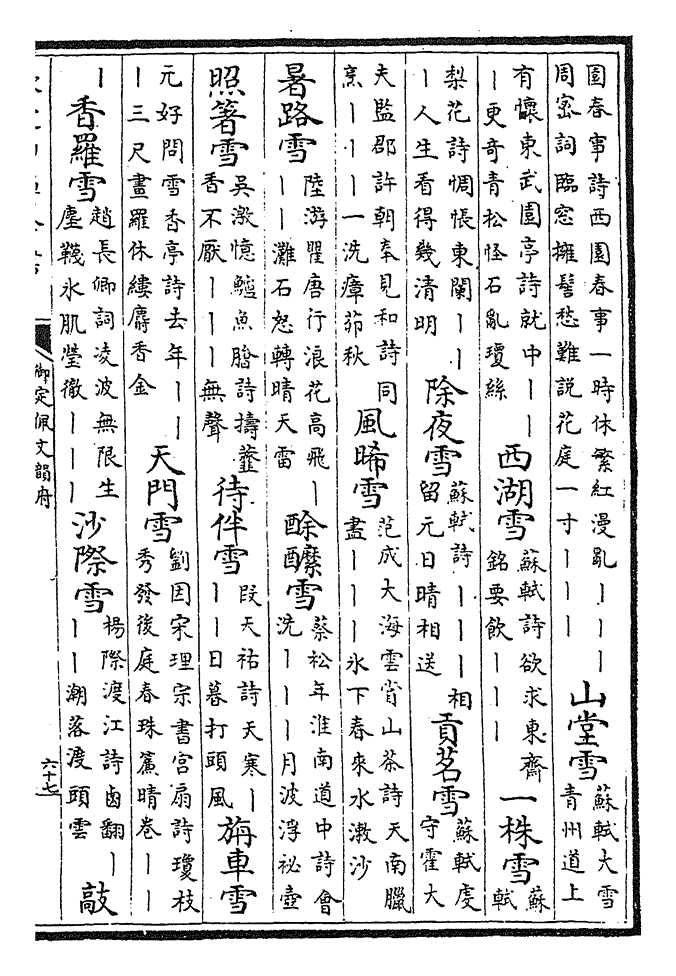 園春事詩西園春事一時休繁紅漫亂｜｜｜
周密詞臨窓擁髻愁難説花庭一寸｜｜｜
山堂雪
蘇軾大雪
青州道上
有懐東武園亭詩就中｜｜
｜更奇青松怪石亂瓊絲
西湖雪
蘇軾詩欲求東齋
銘要飲｜｜｜
一株雪
蘇
軾
梨花詩惆悵東闌｜｜
｜人生看得幾清明
除夜雪
蘇軾詩｜｜｜相
留元日晴相送
貢茗雪
蘇軾虔
守霍大
夫監郡許朝奉見和詩同
烹｜｜｜一洗瘴茆秋
風晞雪
范成大海雲賞山茶詩天南臘
盡｜｜｜氷下春來水漱沙
暑路雪
陸游瞿唐行浪花高飛｜
｜｜灘石怒轉晴天雷
酴醿雪
蔡松年淮南道中詩會
洗｜｜｜月波浮祕壺
照箸雪
吳激憶鱸魚膾詩擣虀
香不厭｜｜｜無聲
待伴雪
段天祐詩天寒｜
｜｜日暮打頭風
旃車雪
元好問雪香亭詩去年｜｜
｜三尺畫羅休縷麝香金
天門雪
劉因宋理宗書宮扇詩瓊枝
秀發後庭春珠簾晴巻｜｜
｜
香羅雪
趙長卿詞凌波無限生
塵韈氷肌瑩徹｜｜｜
沙際雪
楊際渡江詩鹵翻｜
｜｜潮落渡頭雲
敲
御定佩文韻府
六十七